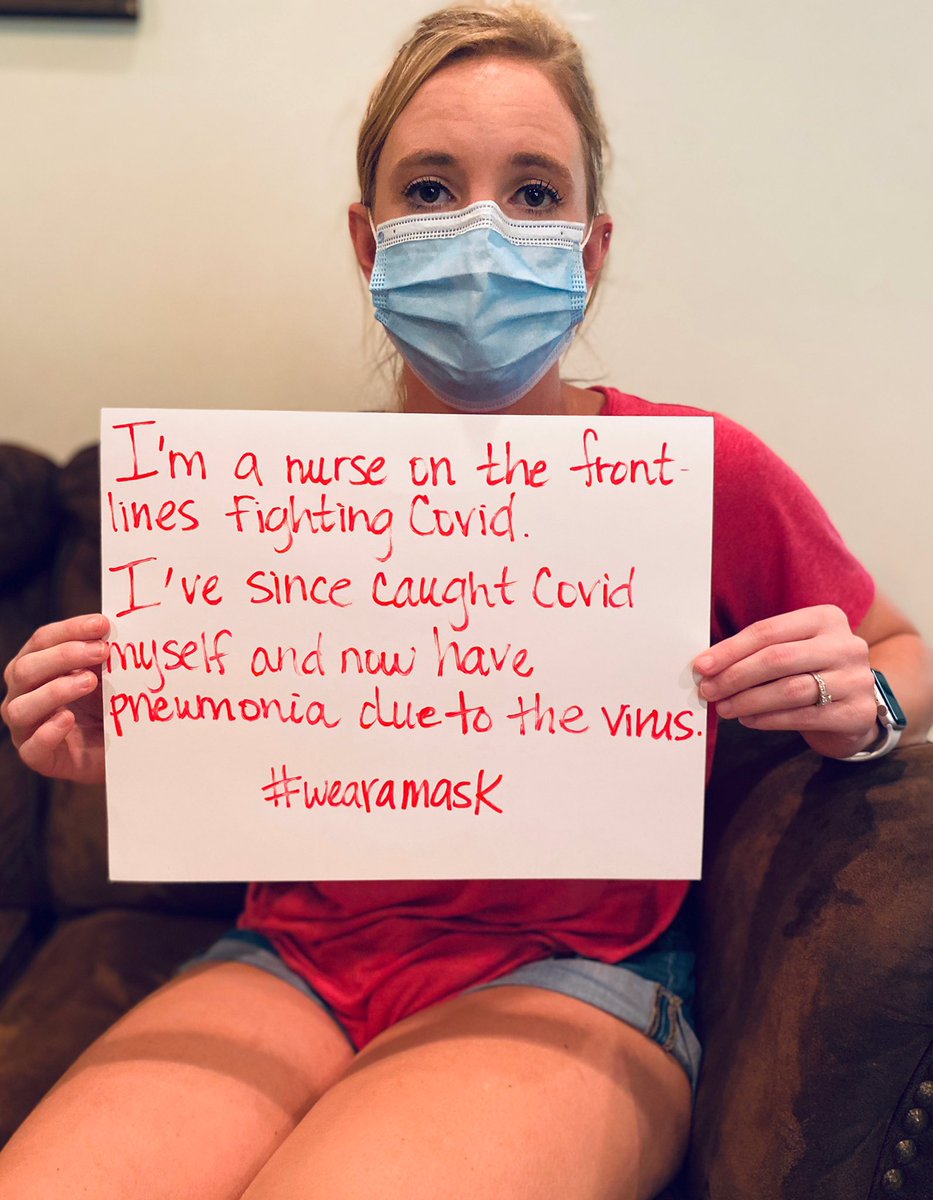 I'm a nurse on the front-
lines fighting Covid.
I've since caught Covid
myself and now have
pneumonia due to the virus.
#wearamask